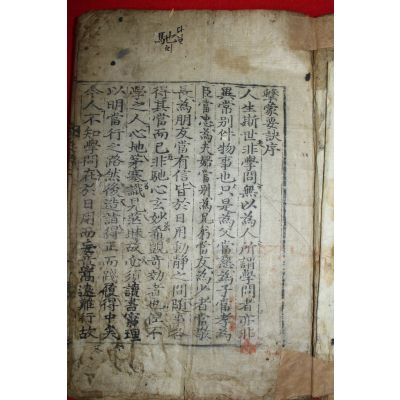 馳 다닐 치
擊蒙要訣序
人生斯世非學問無以為人所謂學問者亦非
異常別件物事也只是為父當慈為子當孝為
臣當忠為夫婦當別為兄弟當友為少者當敬
長為朋友當有信皆於日用動靜之間隨事各
得其當而已非馳心玄妙希覬奇效者也但不
學之人心地茅塞識見茫昧故必須讀書窮理
以明當行之路然後造詣得正而踐履得中矣
今人不知學問在於日用而妄意高遠難行故